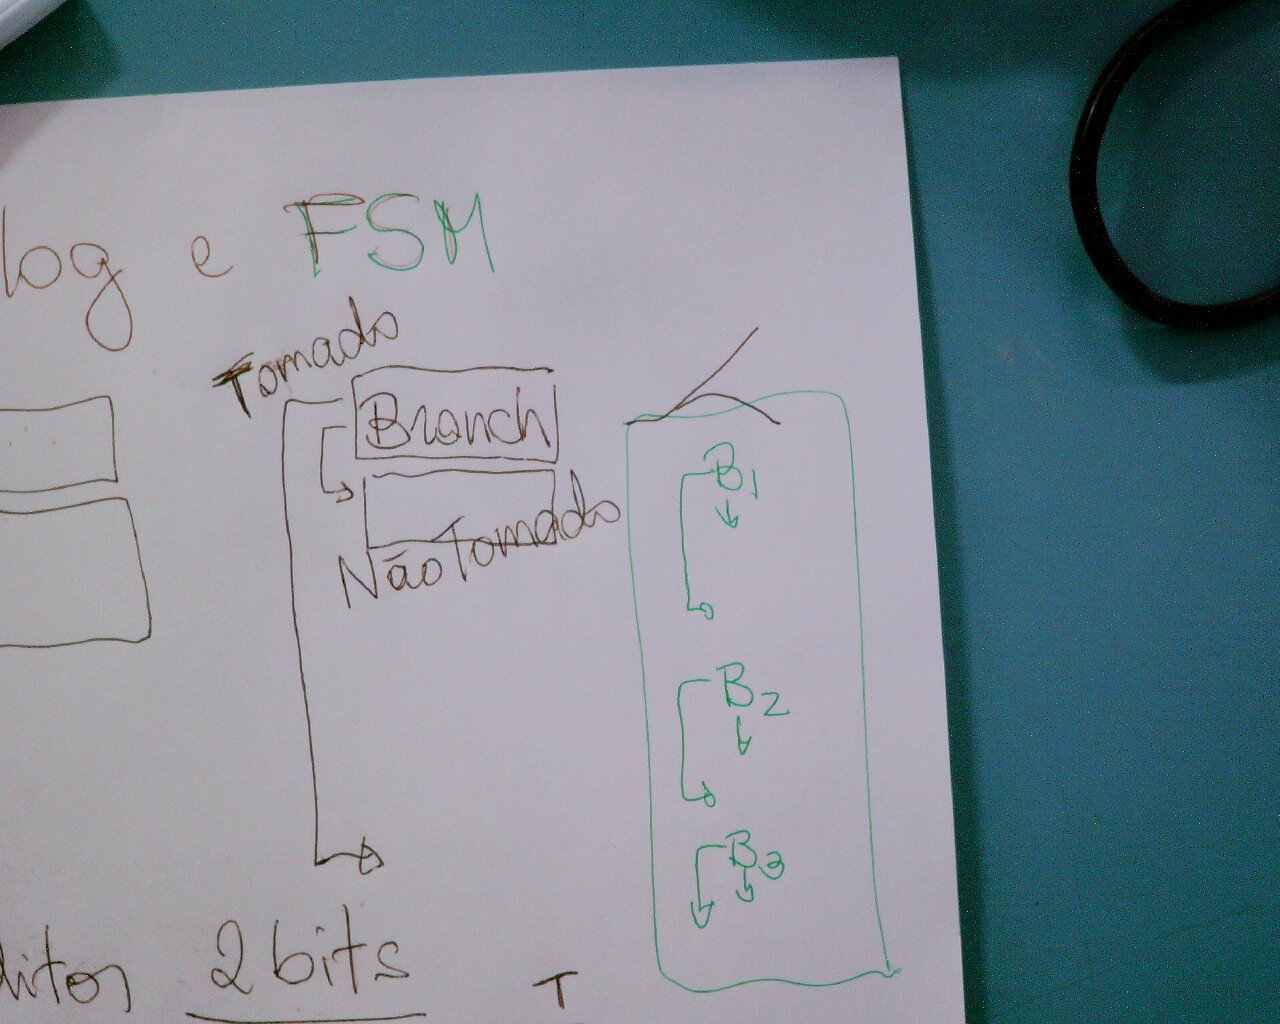 log e FSM
Tomado
Branch
Não Tomado
B1
B2
B3
ditor 2 bits T